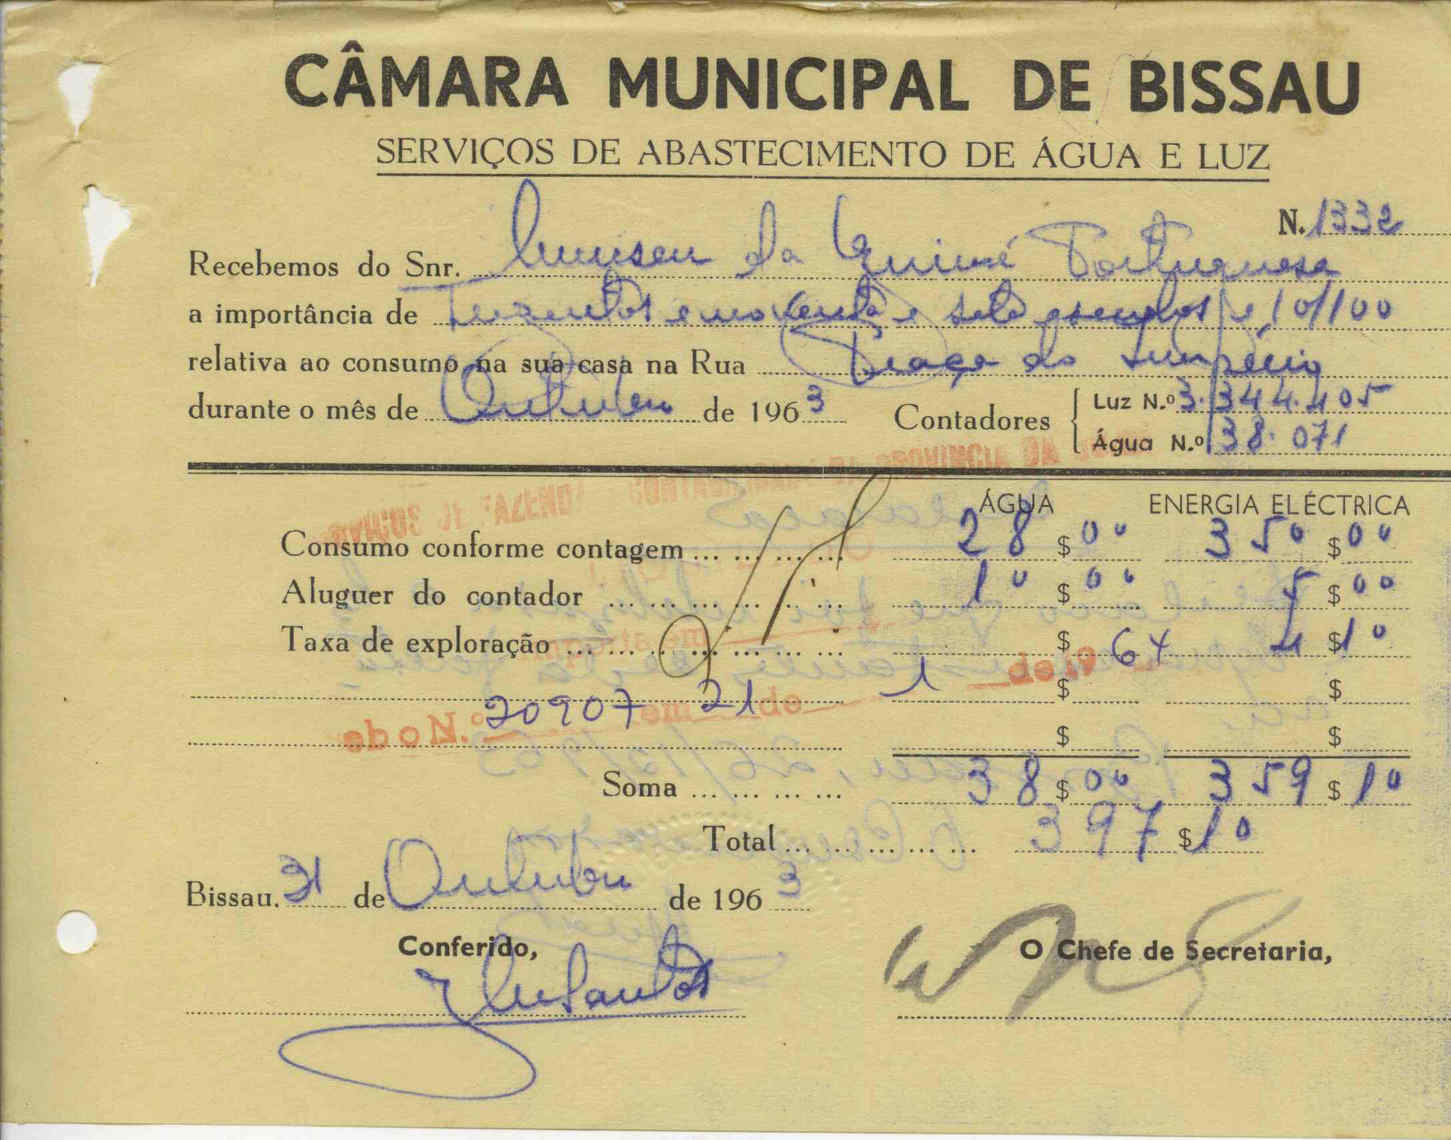 CÂMARA MUNICIPAL DE BISSAU
SERVIÇOS DE ABASTECIMENTO DE ÁGUA E LUZ
N. 1332
Recebemos do Snr. Museu da Guiné Portuguesa
a importância de Trezentos e noventa e sete escudos e 10/100
relativa ao consumo na sua casa na Rua Praça do Império
durante o mês de Outubro de 1963 Contadores
Luz N.º 3.344.405
Água N.º 138.071
ÁGUA ENERGIA ELÉCTRICA
Consumo conforme contagem ... 28$00 350$00
Aluguer do contador ... 10$00 5$00
Taxa de exploração ... $ 64 4$10
20907 21 1 $ $
$ $
Soma ... 38$00 359$10
Total ... 397$10
Bissau, 31 de Outubro de 1963
Conferido,
O Chefe de Secretaria,